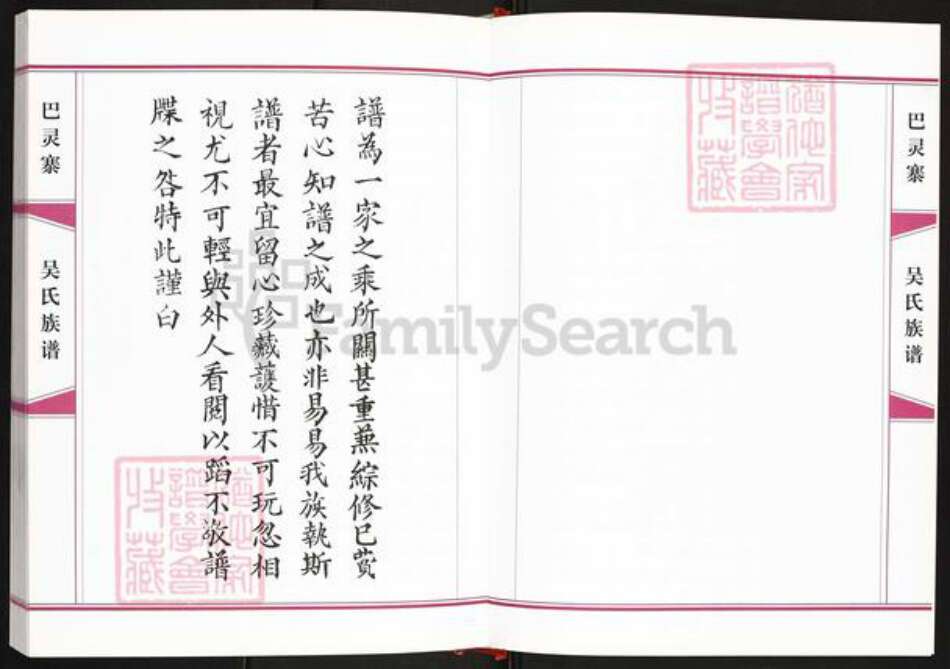 譜為一家之乘所關甚重蕪綜修已費
苦心知譜之成也亦非易易我族執斯
譜者最宜留心珍藏護惜不可玩忽相
視尤不可輕與外人看閱以蹈不敬譜
牒之咎特此謹白
巴灵寨
吴氏族谱
巴灵寨
吴氏族谱
FamilySearch